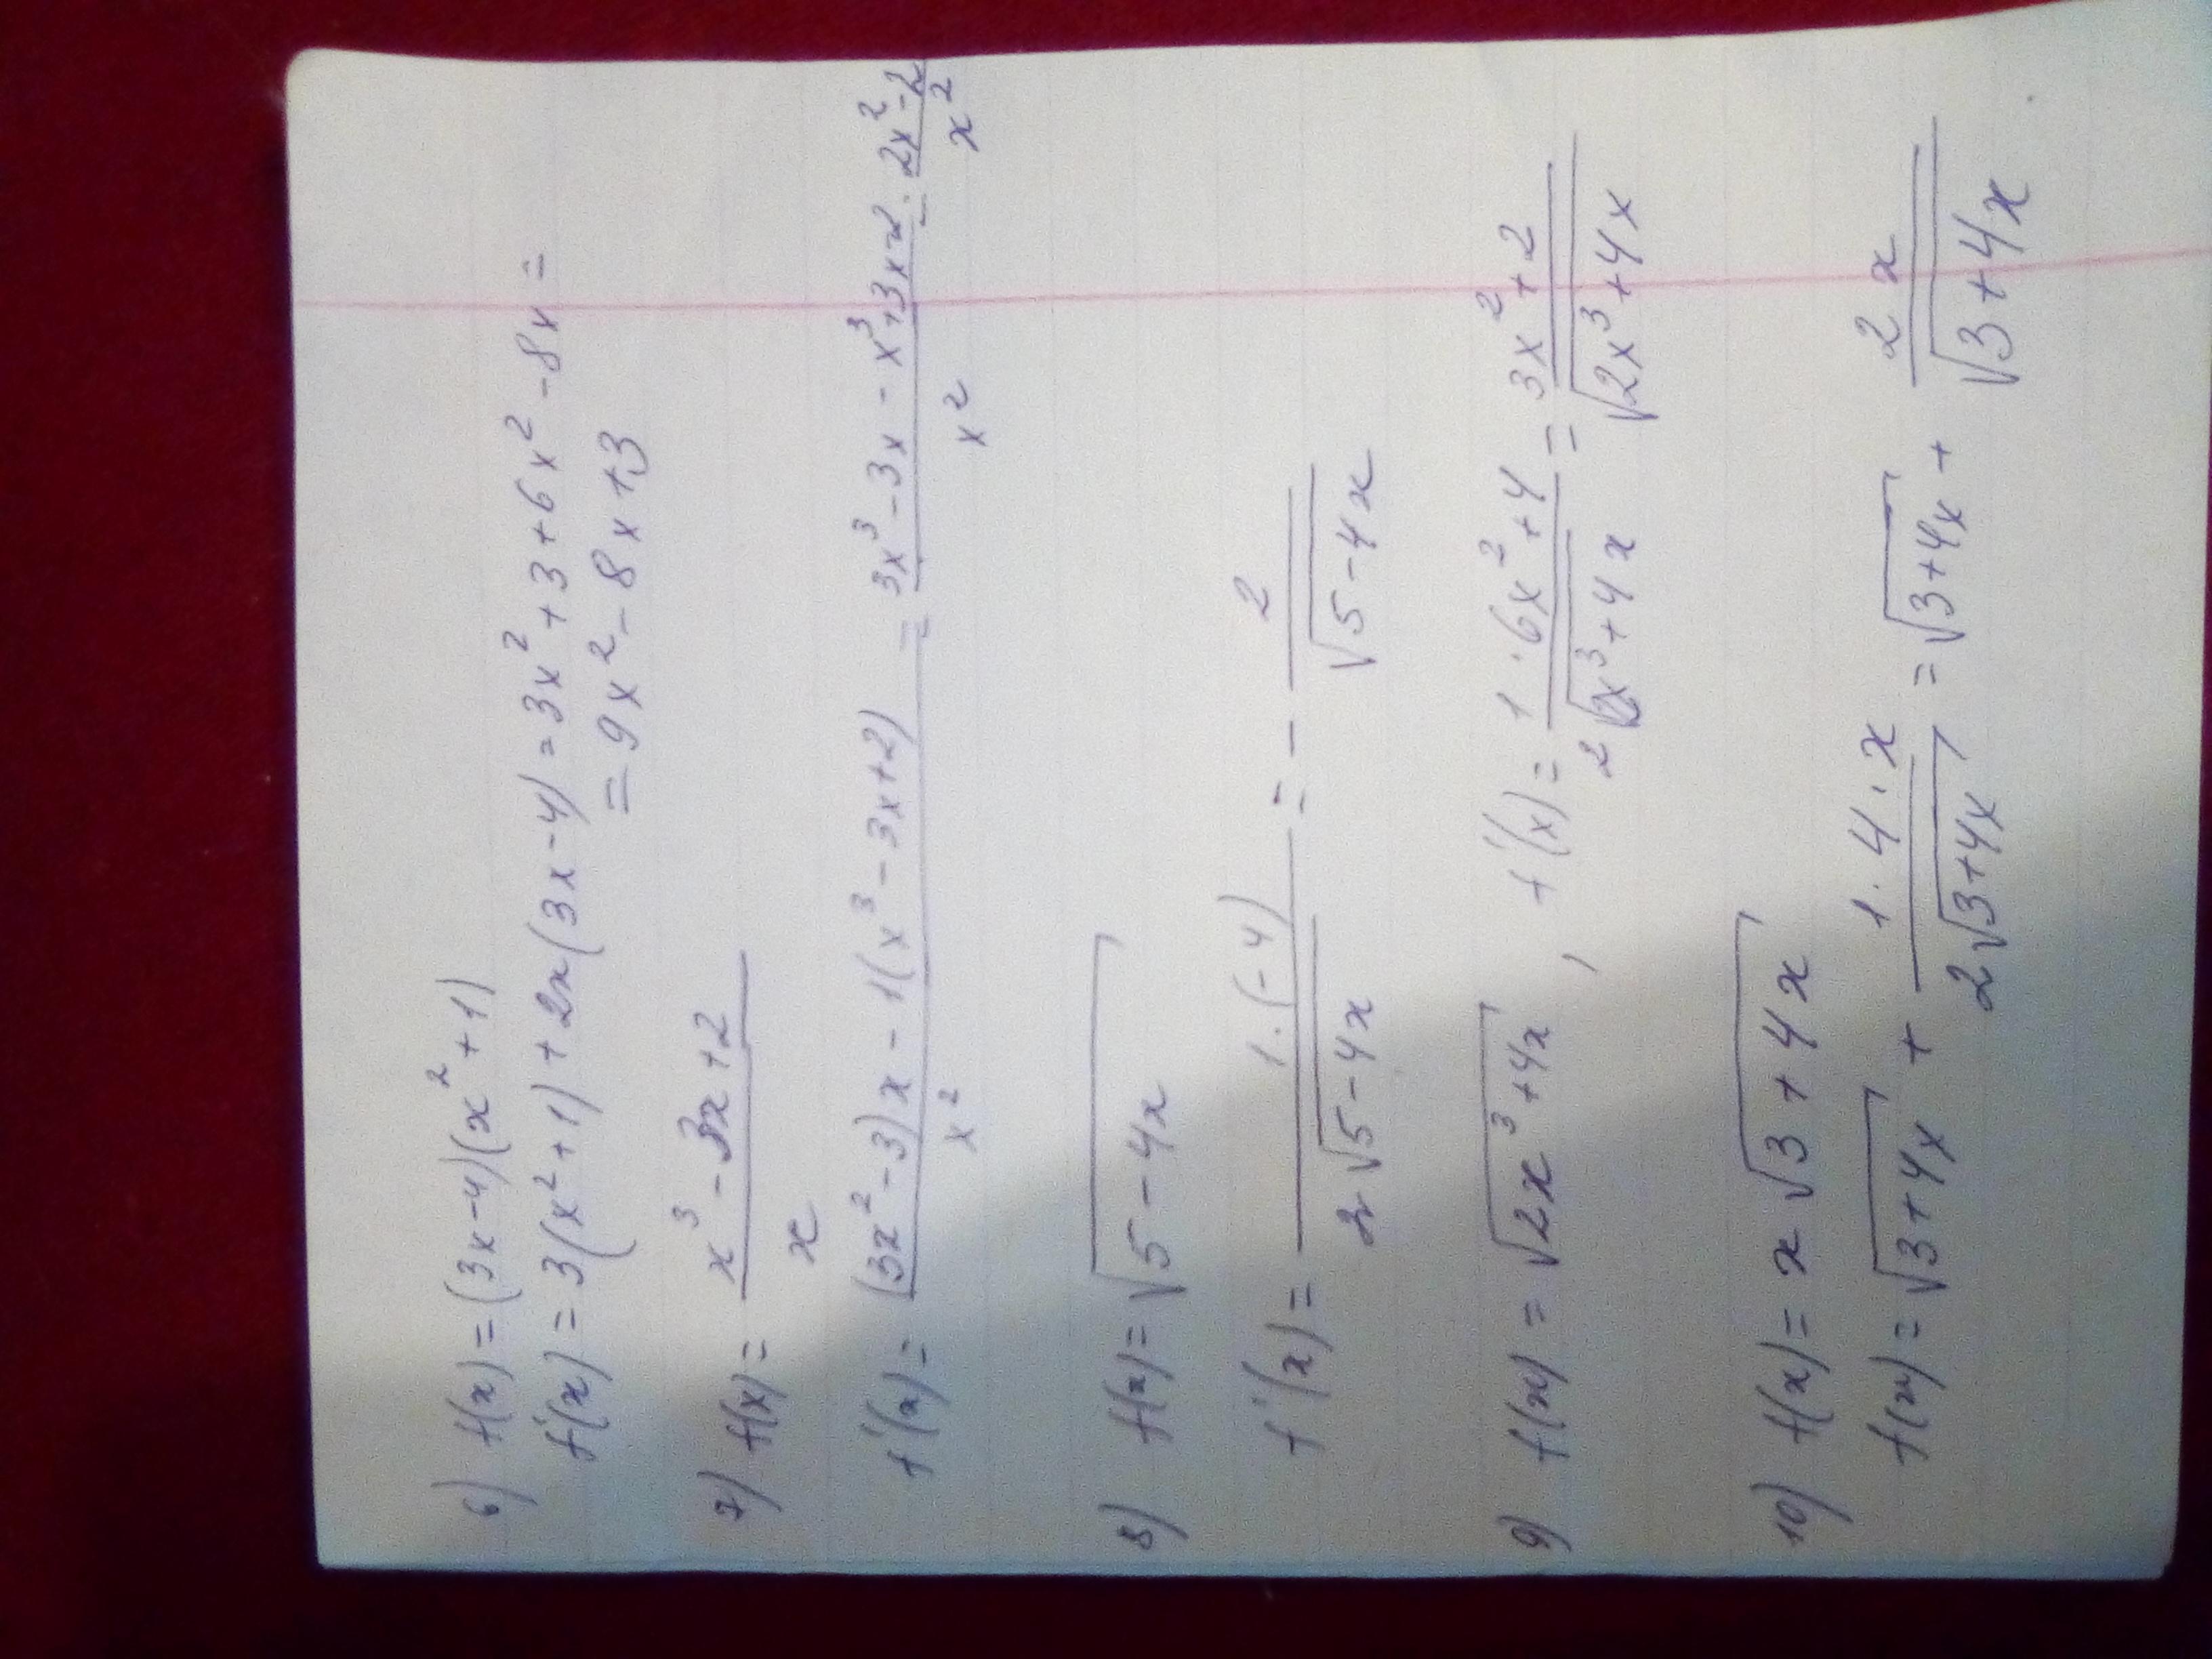 6) f(x) = (3x-4)(x²+1)
f'(x) = 3(x²+1) + 2x(3x-4) = 3x² + 3 + 6x² - 8x =
= 9x² - 8x + 3
7) f(x) = (x³ - 3x + 2)/x
f'(x) = ((3x² - 3)x - 1(x³ - 3x + 2))/x² = (3x³ - 3x - x³ + 3x - 2)/x² = (2x² - 2)/x²
8) f(x) = √(5 - 4x)
f'(x) = (1·(-4))/(2√(5 - 4x)) = - 2/√(5 - 4x)
9) f(x) = √(2x³ + 4x), f'(x) = (1·6x² + 4)/(2√(2x³ + 4x)) = (3x² + 2)/√(2x³ + 4x)
10) f(x) = x√(3 + 4x)
f(x) = √(3+4x) + (1·4·x)/(2√(3+4x)) = √(3+4x) + 2x/√(3+4x)